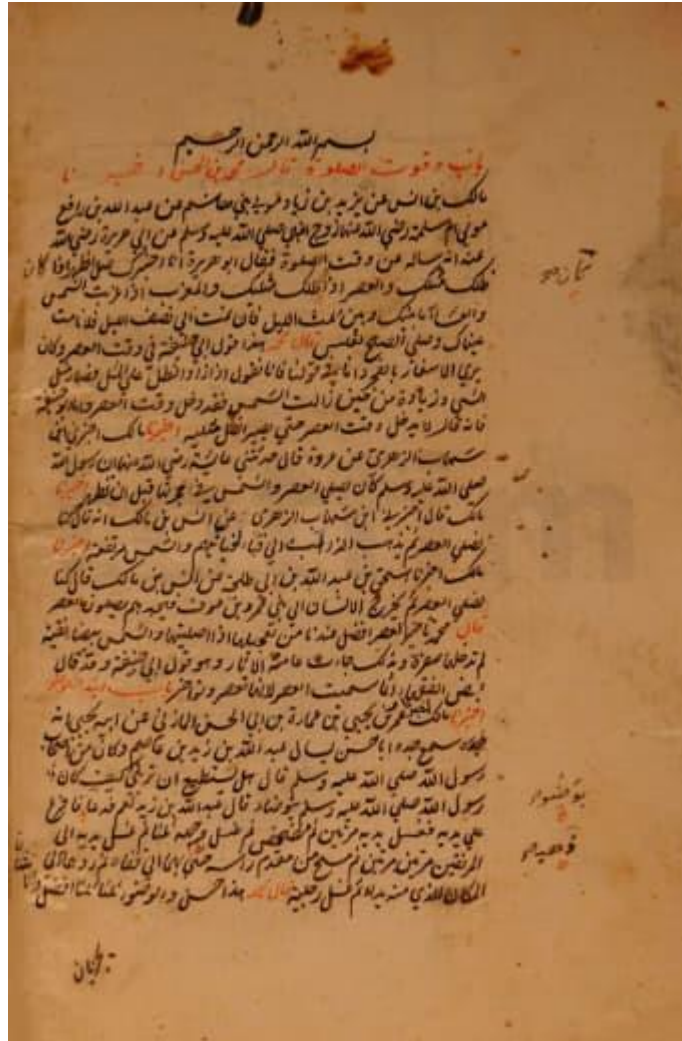 بسم الله الرحمن الرحيم
باب وقوت الصلوة قال محمد بن الحسن
مالك بن انس عن يزيد بن زياد مولى بني هاشم عن عبد الله بن رافع
مولى ام سلمة رضي الله عنها زوج النبي صلى الله عليه وسلم عن ابي هريرة رضي الله
عنه انه ساله عن وقت الصلوة فقال ابو هريرة انا اخبرك صل الظهر اذا كان
ظلك مثلك والعصر اذا ظلك مثليك والمغرب اذا غربت الشمس
والعشا ما بينك وبين ثلث الليل فان نمت الى نصف الليل فلا نامت
عيناك وصلي الصبح بغلس قال محمد هذا قول ابي حنيفة في وقت العصر وكان
يرى الاسفار بالفجر قولنا فانا نقول اذا زاد الظل على المثل فصار مثل
الشي وزيادة من حين زالت الشمس فقد دخل وقت العصر
فانه قال لا يدخل وقت العصر حتى يصير الظل مثليه اخبرنا مالك اخبرني ابن
شهاب الزهري عن عروة قال حدثتني عائشة رضي الله عنها ان رسول الله
صلى الله عليه وسلم كان يصلي العصر والشمس في حجرتها قبل ان تظهر اخبرنا
مالك قال اخبرني ابن شهاب الزهري عن انس بن مالك انه قال كنا
نصلي العصر ثم يذهب الذاهب الى قبا فياتيهم والشمس مرتفعة اخبرنا
مالك اخبرنا اسحق بن عبد الله بن ابي طلحة عن انس بن مالك قال كنا
نصلي العصر ثم يخرج الانسان الى بني عمرو بن عوف فيجدهم يصلون العصر
قال محمد تاخير العصر افضل عندنا من تعجيلها اذا صليتها والشمس بيضا نقية
لم تدخلها صفرة وبذلك جاءت عامة الاثار وهو قول ابي حنيفة وقد قال
بعض الفقها انما سميت العصر لانها تعصر وتؤخر باب ابتدا الوضو
اخبرنا مالك عمرو بن يحيى بن عمارة بن ابي الحسن المازني عن ابيه يحيى انه
سمع جده ابا حسن يسال عبد الله بن زيد بن عاصم وكان من اصحاب
رسول الله صلى الله عليه وسلم قال هل تستطيع ان تريني كيف كان
رسول الله صلى الله عليه وسلم يتوضا قال عبد الله بن زيد نعم فدعا فافرغ
على يديه فغسل يديه مرتين ثم مضمض ثم غسل وجهه ثلثا ثم غسل يديه الى
المرفقين مرتين مرتين ثم مسح من مقدم راسه حتى الى قفاه ثم ردهما الى
المكان الذي منه بدا ثم غسل رجليه قال محمد هذا حسن والوضوء ثلثا ثلثا افضل